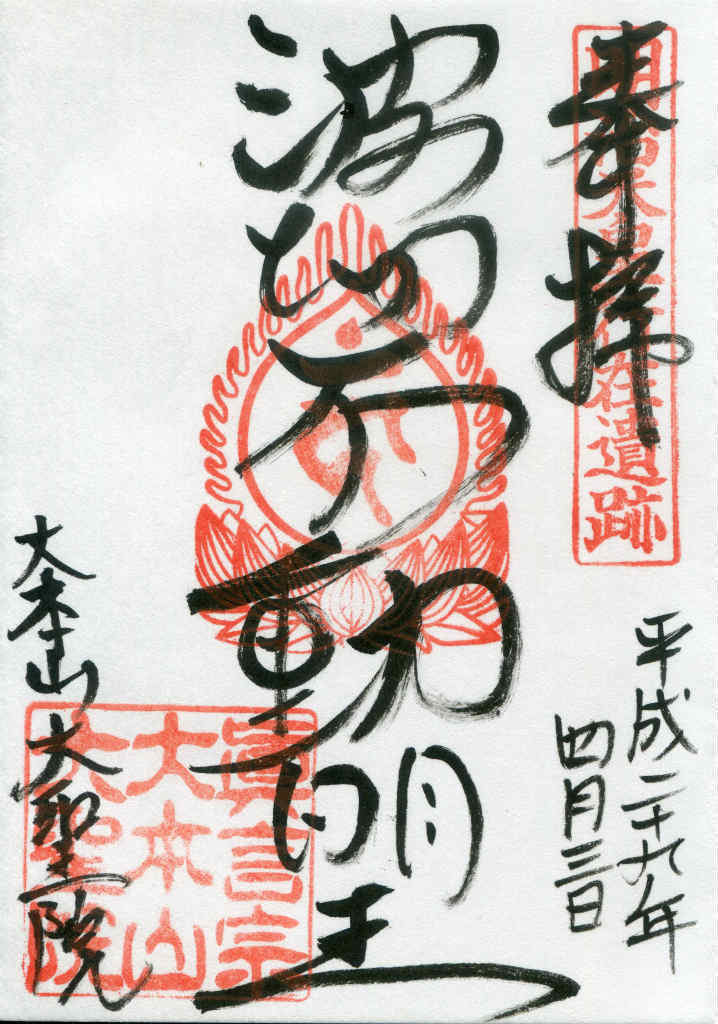 奉拝
明治天皇行在遺跡
平成二十九年
四月三日
波切不動明王
大本山大聖院
眞言宗
大本山
大聖院